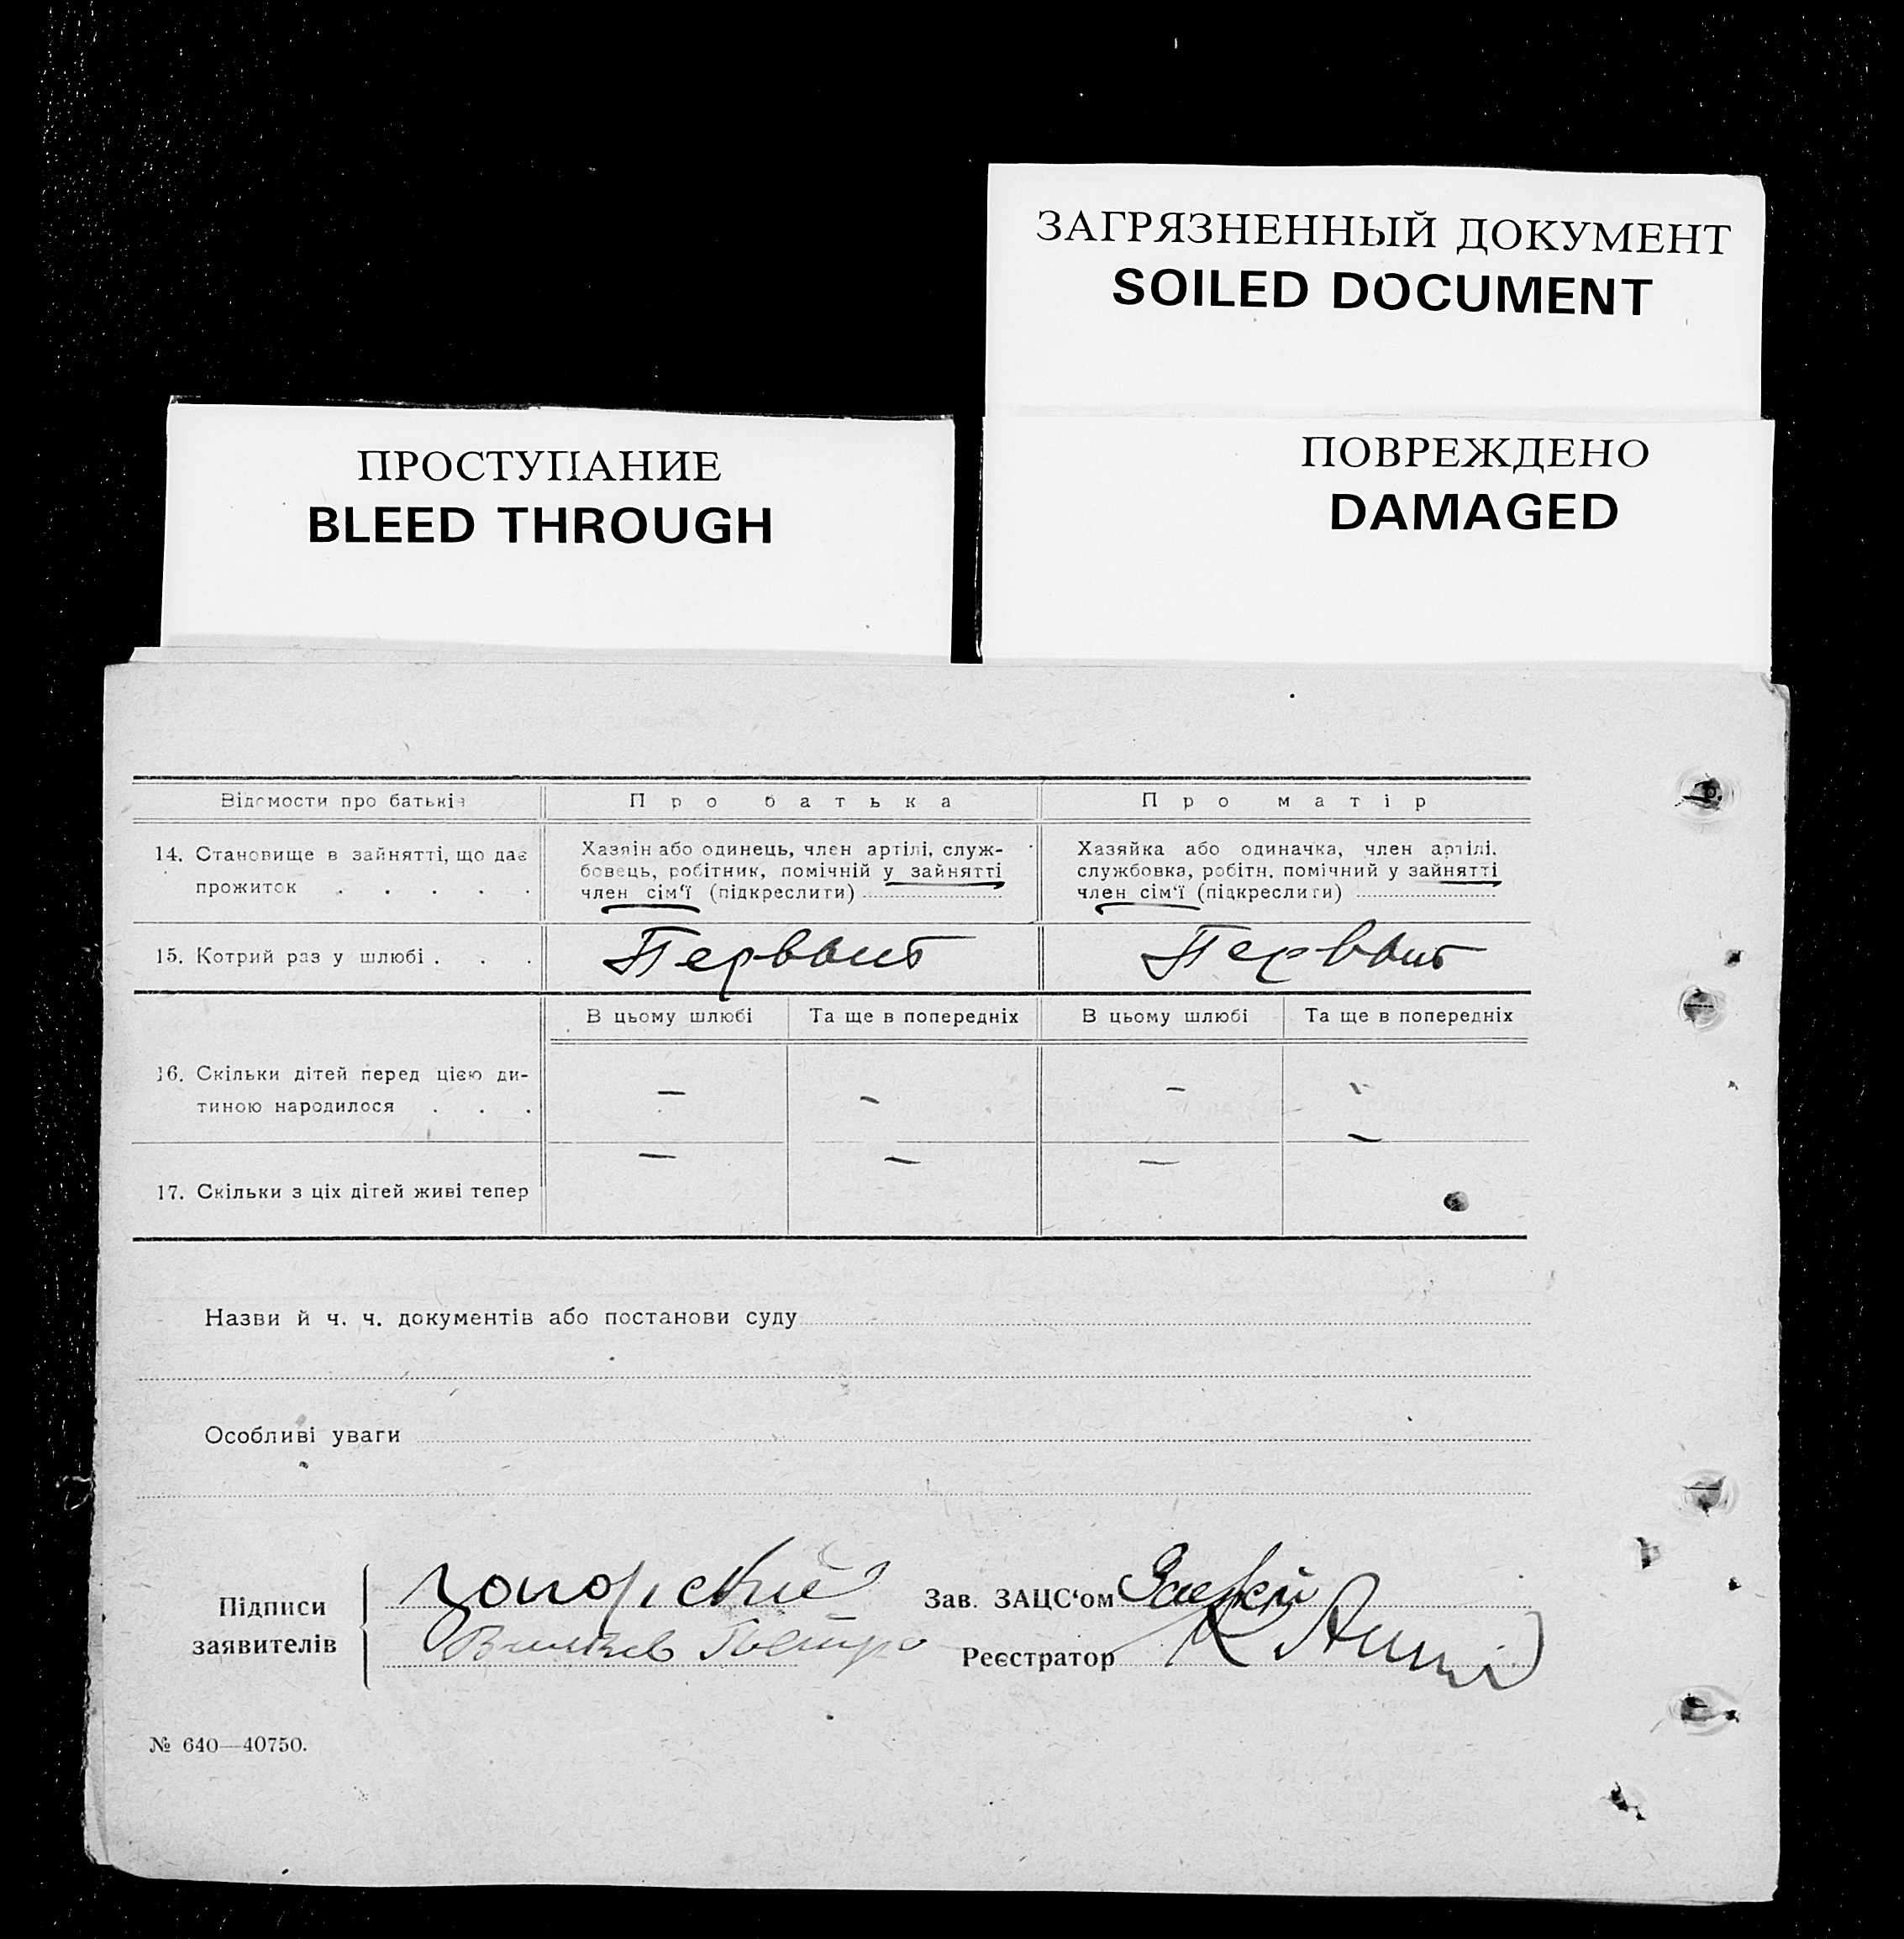 ЗАГРЯЗНЕННЫЙ ДОКУМЕНТ
SOILED DOCUMENT
ПРОСТУПАНИЕ
BLEED THROUGH
ПОВРЕЖДЕНО
DAMAGED
Відомости про батьків
Про батька
Про матір
14. Становище в зайнятті, що дає
прожиток . . . . .
Хазяїн або одинець, член артілі, служ-
бовець, робітник, помічній у зайнятті
член сім'ї (підкреслити)
Хазяйка або одиначка, член артілі,
службовка, робітн. помічний у зайнятті
член сім'ї (підкреслити)
15. Котрий раз у шлюбі . . .
Первый
Первый
В цьому шлюбі
Та ще в попередніх
В цьому шлюбі
Та ще в попередніх
16. Скільки дітей перед цією ди-
тиною народилося . . .
— — — —
17. Скільки з ціх дітей живі тепер
— — — —
Назви й ч. ч. документів або постанови суду
Особливі уваги
Підписи
заявителів
Зав. ЗАЦС'ом
Реєстратор
№ 640—40750.